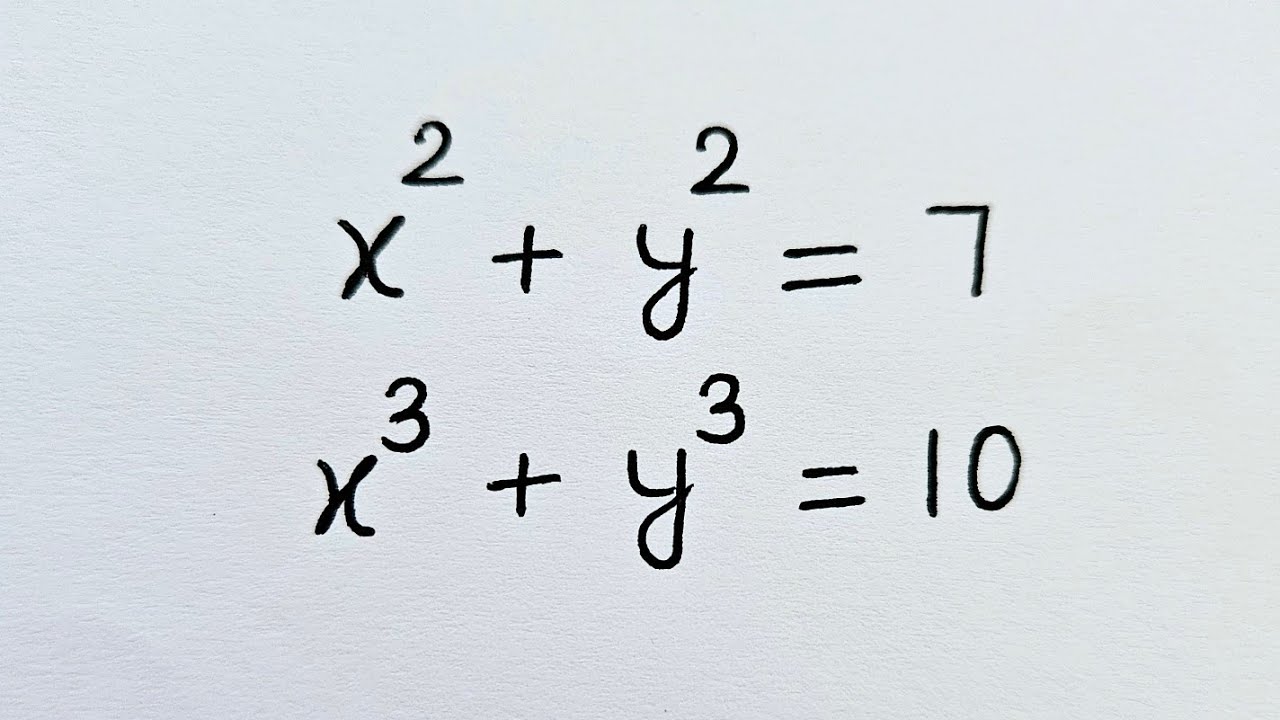 x² + y² = 7
x³ + y³ = 10